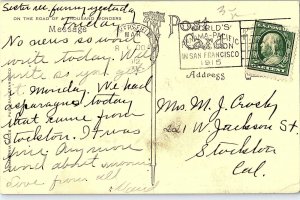 Sister
ON THE ROAD OF A THOUSAND WONDERS
Friday
Message
No news so won't
write today. Will
write as you get
it Monday. We had
asparagus today
that came from
Stockton. It was
fine. Any more
word about
Love from all
Post Card
WORLD'S
PANAMA-PACIFIC
EXPOSITION
IN SAN FRANCISCO
1915
Address
Mrs M. J. Crosby
221 W. Jackson St
Stockton
Cal.